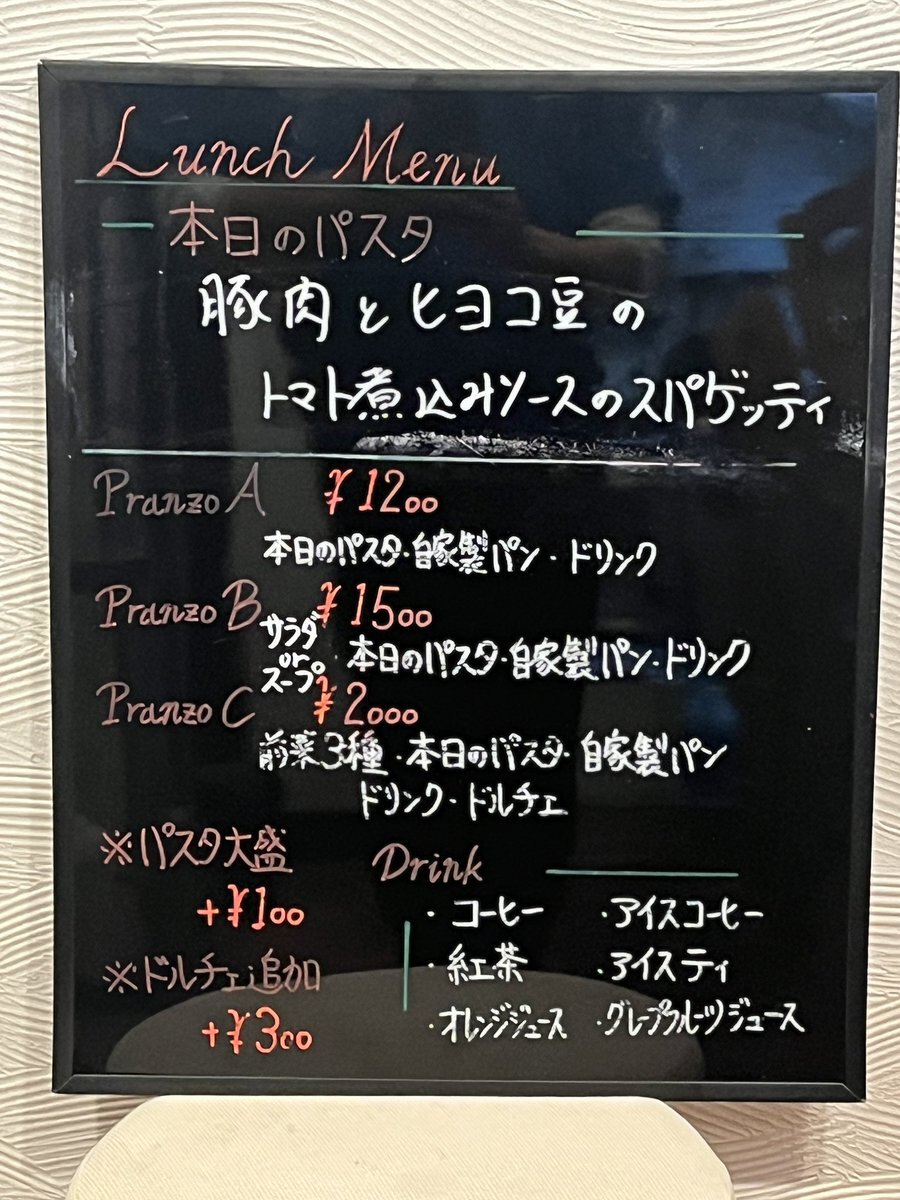 Lunch Menu
本日のパスタ
豚肉とヒヨコ豆の
トマト煮込みソースのスパゲッティ
Pranzo A ¥1200
本日のパスタ・自家製パン・ドリンク
Pranzo B ¥1500
サラダ
or
スープ
・本日のパスタ・自家製パン・ドリンク
Pranzo C ¥2000
前菜3種・本日のパスタ・自家製パン
ドリンク・ドルチェ
※パスタ大盛
+¥100
※ドルチェ追加
+¥300
Drink
・コーヒー ・アイスコーヒー
・紅茶 ・アイスティ
・オレンジジュース ・グレープフルーツジュース